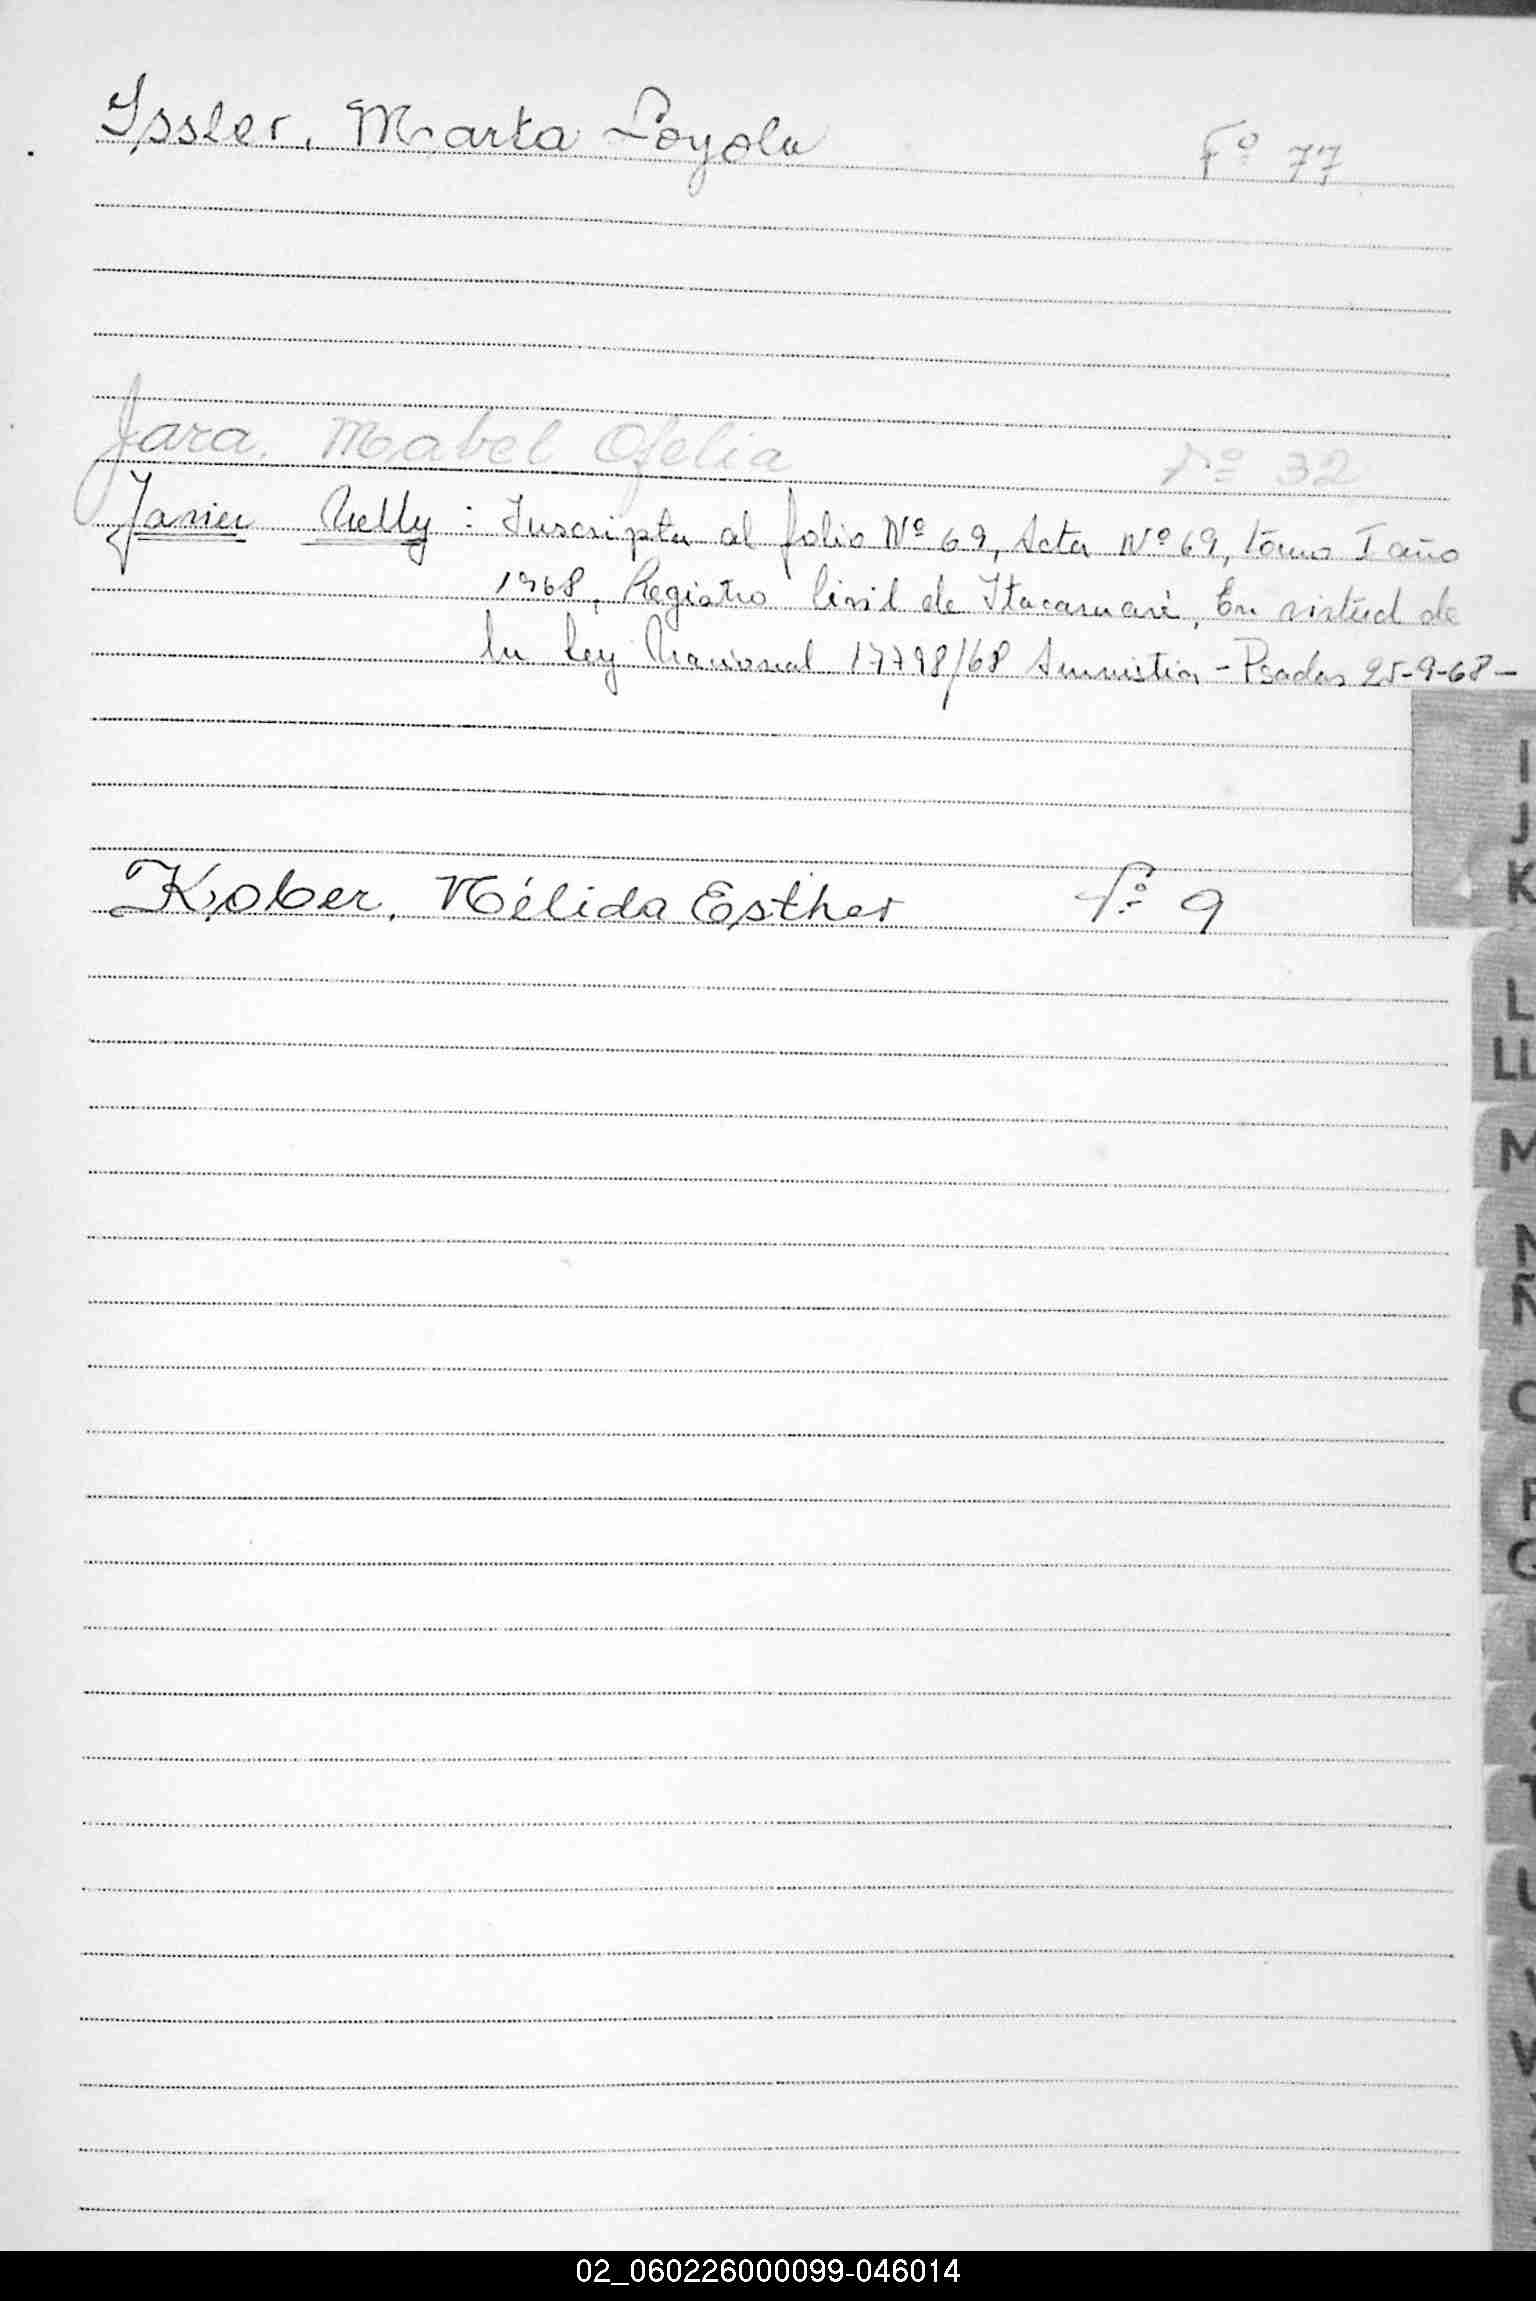 Issler, Marta Loyola Fº 77
Jara, Mabel Ofelia Fº 32
Javier Nelly : Inscripta al folio Nº 69, Acta Nº 69, tomo I año
1968, Registro Civil de Itacaruaré, En virtud de
la Ley Nacional 17798/68 Amnistia - Psadas 25-9-68-
I
J
K
Kober, Nélida Esther Fº 9
L
LL
M
N
Ñ
O
P
Q
T
U
V
02_060226000099-046014